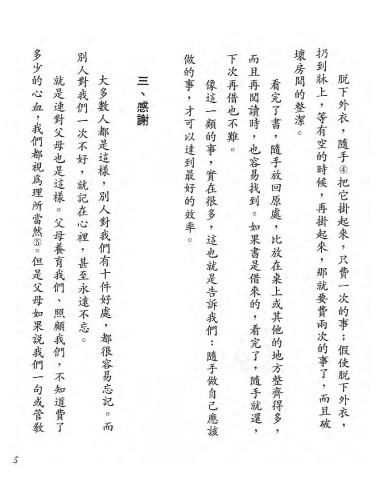 脫下外衣，隨手④把它掛起來，只費一次的事；假使脫下外衣，
扔到牀上，等有空的時候，再掛起來，那就要費兩次的事了，而且破
壞房間的整潔。
看完了書，隨手放回原處，比放在桌上或其他的地方整齊得多，
而且再閱讀時，也容易找到。如果書是借來的，看完了，隨手就還，
下次再借也不難。
像這一類的事，實在很多，這也就是告訴我們：隨手做自己應該
做的事，才可以達到最好的效率。
三、感謝
大多數人都是這樣，別人對我們有十件好處，都很容易忘記。而
別人對我們一次不好，就記在心裡，甚至永遠不忘。
就是連對父母也是這樣。父母養育我們、照顧我們，不知道費了
多少的心血，我們都視為理所當然⑤。但是父母如果說我們一句或管教
5